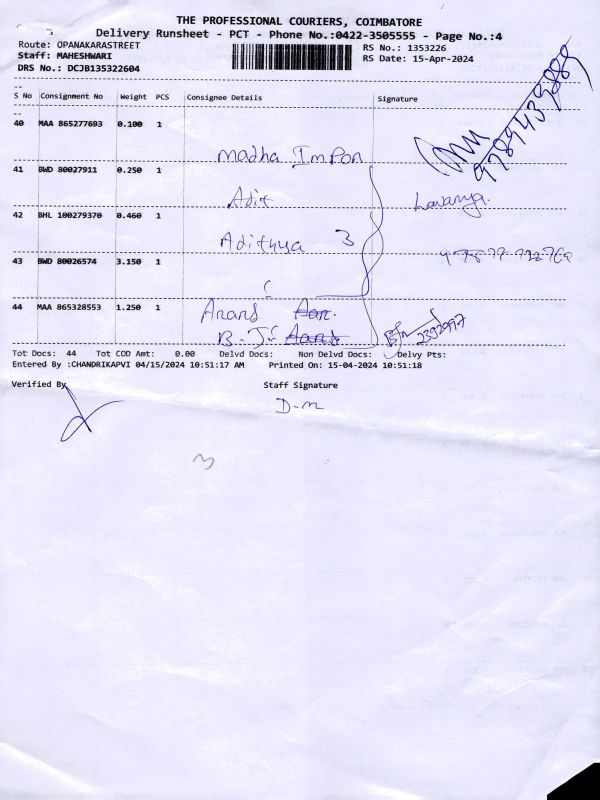 THE PROFESSIONAL COURIERS, COIMBATORE
Delivery Runsheet - PCT - Phone No.:0422-3505555 - Page No.:4
Route: OPANAKARASTREET
Staff: MAHESHWARI
DRS No.: DCJB135322604
RS No.: 1353226
RS Date: 15-Apr-2024
S No Consignment No Weight PCS Consignee Details Signature
40 MAA 865277693 0.100 1
madha Impon
9789435889
41 BWD 80027911 0.250 1
Adit
Lavanya.
42 BHL 100279370 0.460 1
Adithya 3
43 BWD 80026574 3.150 1
44 MAA 865328553 1.250 1
Anand
2392977
Tot Docs: 44 Tot COD Amt: 0.00 Delvd Docs: Non Delvd Docs: Delvy Pts:
Entered By :CHANDRIKAPVI 04/15/2024 10:51:17 AM Printed On: 15-04-2024 10:51:18
Verified By
Staff Signature
D-m